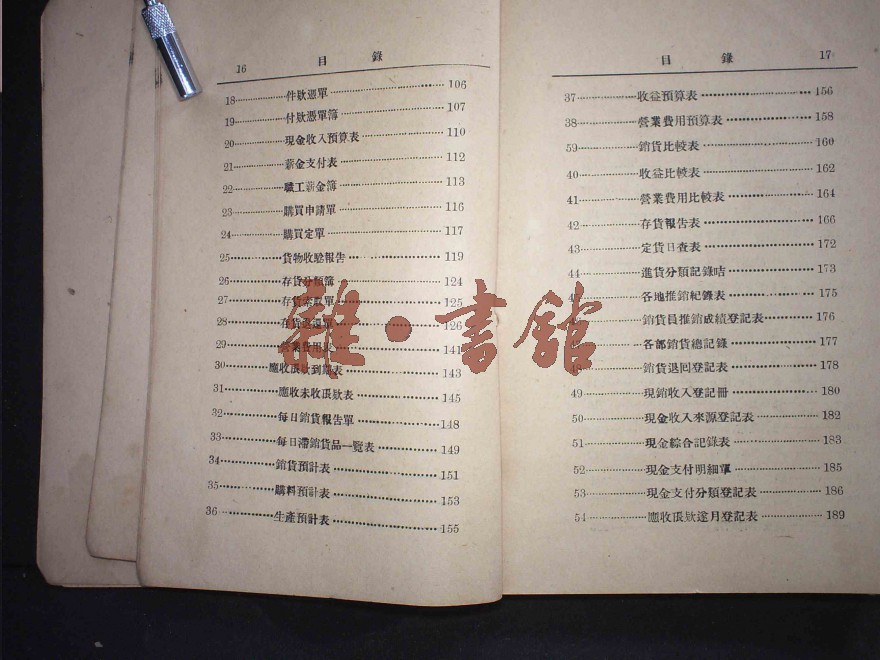 16 目錄
18 件欵憑單 106
19 付欵憑單簿 107
20 現金收入預算表 110
21 薪金支付表 112
22 職工薪金簿 113
23 購買申請單 116
24 購買定單 117
25 貨物收驗報告 119
26 存貨分類簿 124
27 存貨 單 125
28 存貨退還單 126
29 營業費用表 141
30 應收賬欵到期表 143
31 應收未收賬欵表 145
32 每日銷貨報告單 148
33 每日滯銷貨品一覽表 149
34 銷貨預計表 151
35 購料預計表 153
36 生產預計表 155
目錄 17
37 收益預算表 156
38 營業費用預算表 158
59 銷貨比較表 160
40 收益比較表 162
41 營業費用比較表 164
42 存貨報告表 166
43 定貨日查表 172
44 進貨分類記錄咭 173
各地推銷紀錄表 175
銷貨員推銷成績登記表 176
各部銷貨總記錄 177
48 銷貨退回登記表 178
49 現銷收入登記冊 180
50 現金收入來源登記表 182
51 現金綜合記錄表 183
52 現金支付明細單 185
53 現金支付分類登記表 186
54 應收賬欵逐月登記表 189
雜·書館